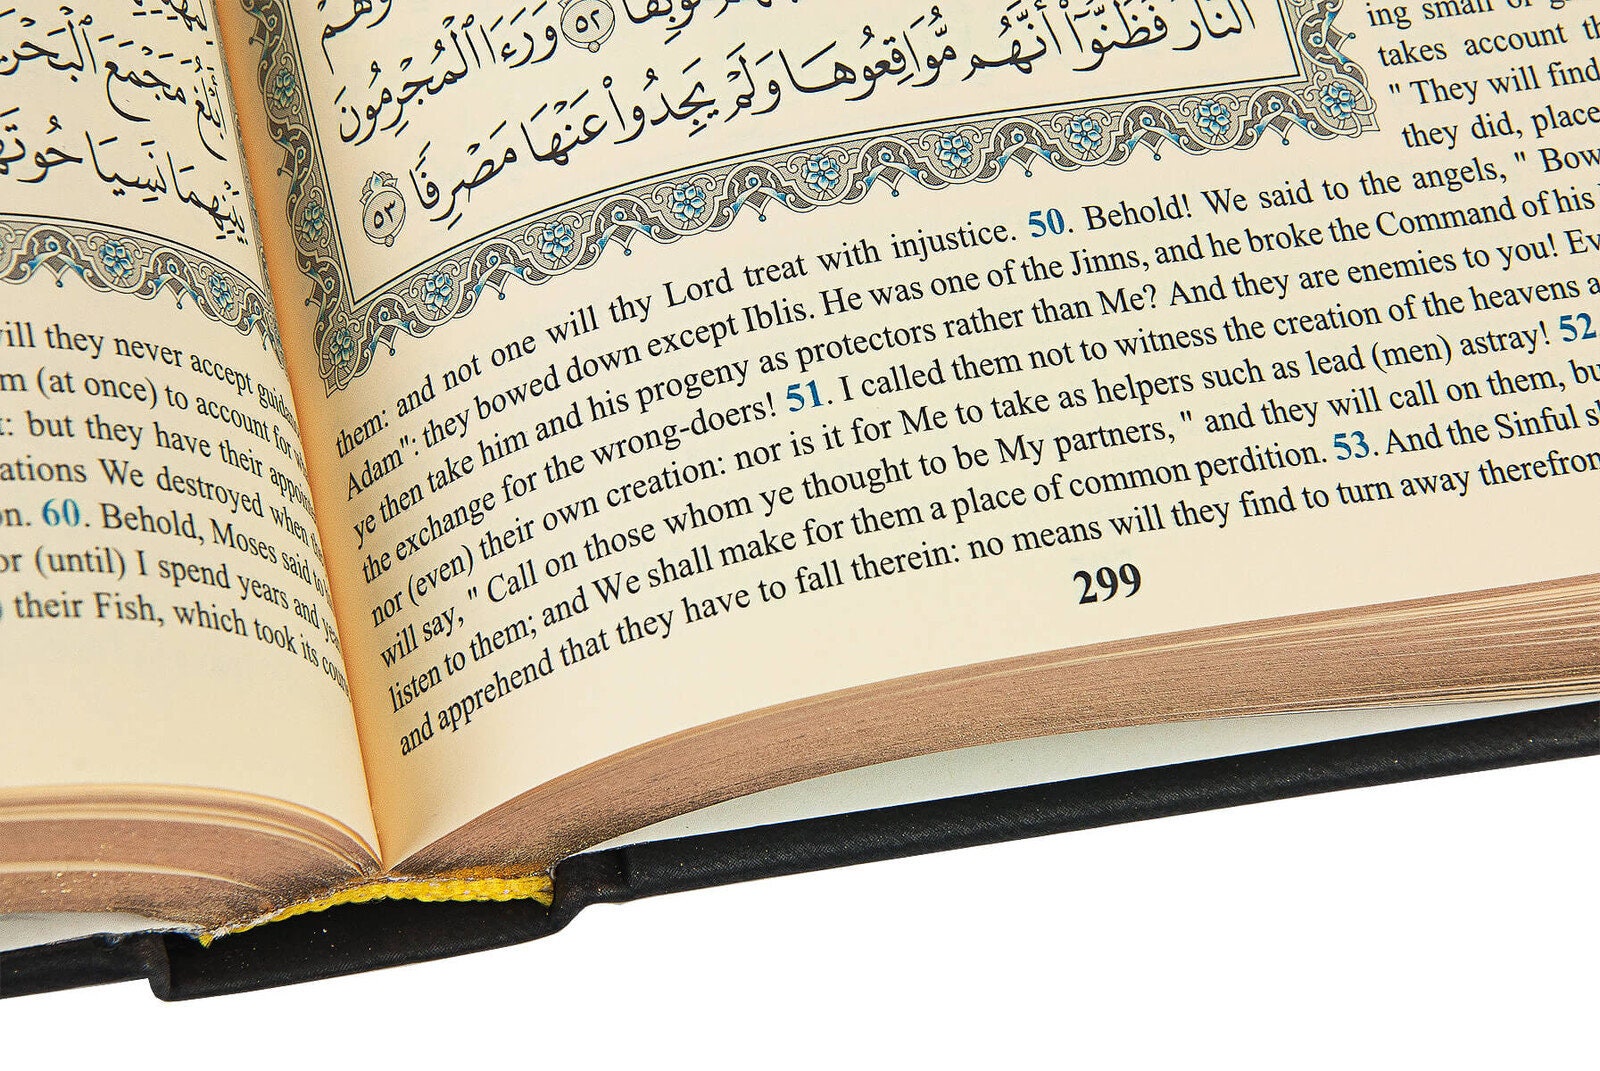 أَبْلُغَ مَجْمَعَ الْبَحْرَ
بَيْنِهِمَا نَسِيَا حُوتَهُ
ill they never accept
m (at once) to account for
: but they have their
ations We destroyed when
on. 60. Behold, Moses said to
or (until) I spend years and
) their Fish, which took its
وَرَءَا الْمُجْرِمُونَ
النَّارَ فَظَنُّوٓا أَنَّهُم مُّوَاقِعُوهَا وَلَمْ يَجِدُوا عَنْهَا مَصْرِفًا ٥٣
ing small or
takes account
" They will find
they did, place
them: and not one will thy Lord treat with injustice. 50. Behold! We said to the angels, " Bow
Adam": they bowed down except Iblis. He was one of the Jinns, and he broke the Command of his
ye then take him and his progeny as protectors rather than Me? And they are enemies to you! Ev
the exchange for the wrong-doers! 51. I called them not to witness the creation of the heavens a
nor (even) their own creation: nor is it for Me to take as helpers such as lead (men) astray! 52.
will say, " Call on those whom ye thought to be My partners, " and they will call on them, bu
listen to them; and We shall make for them a place of common perdition. 53. And the Sinful s
and apprehend that they have to fall therein: no means will they find to turn away therefrom
299